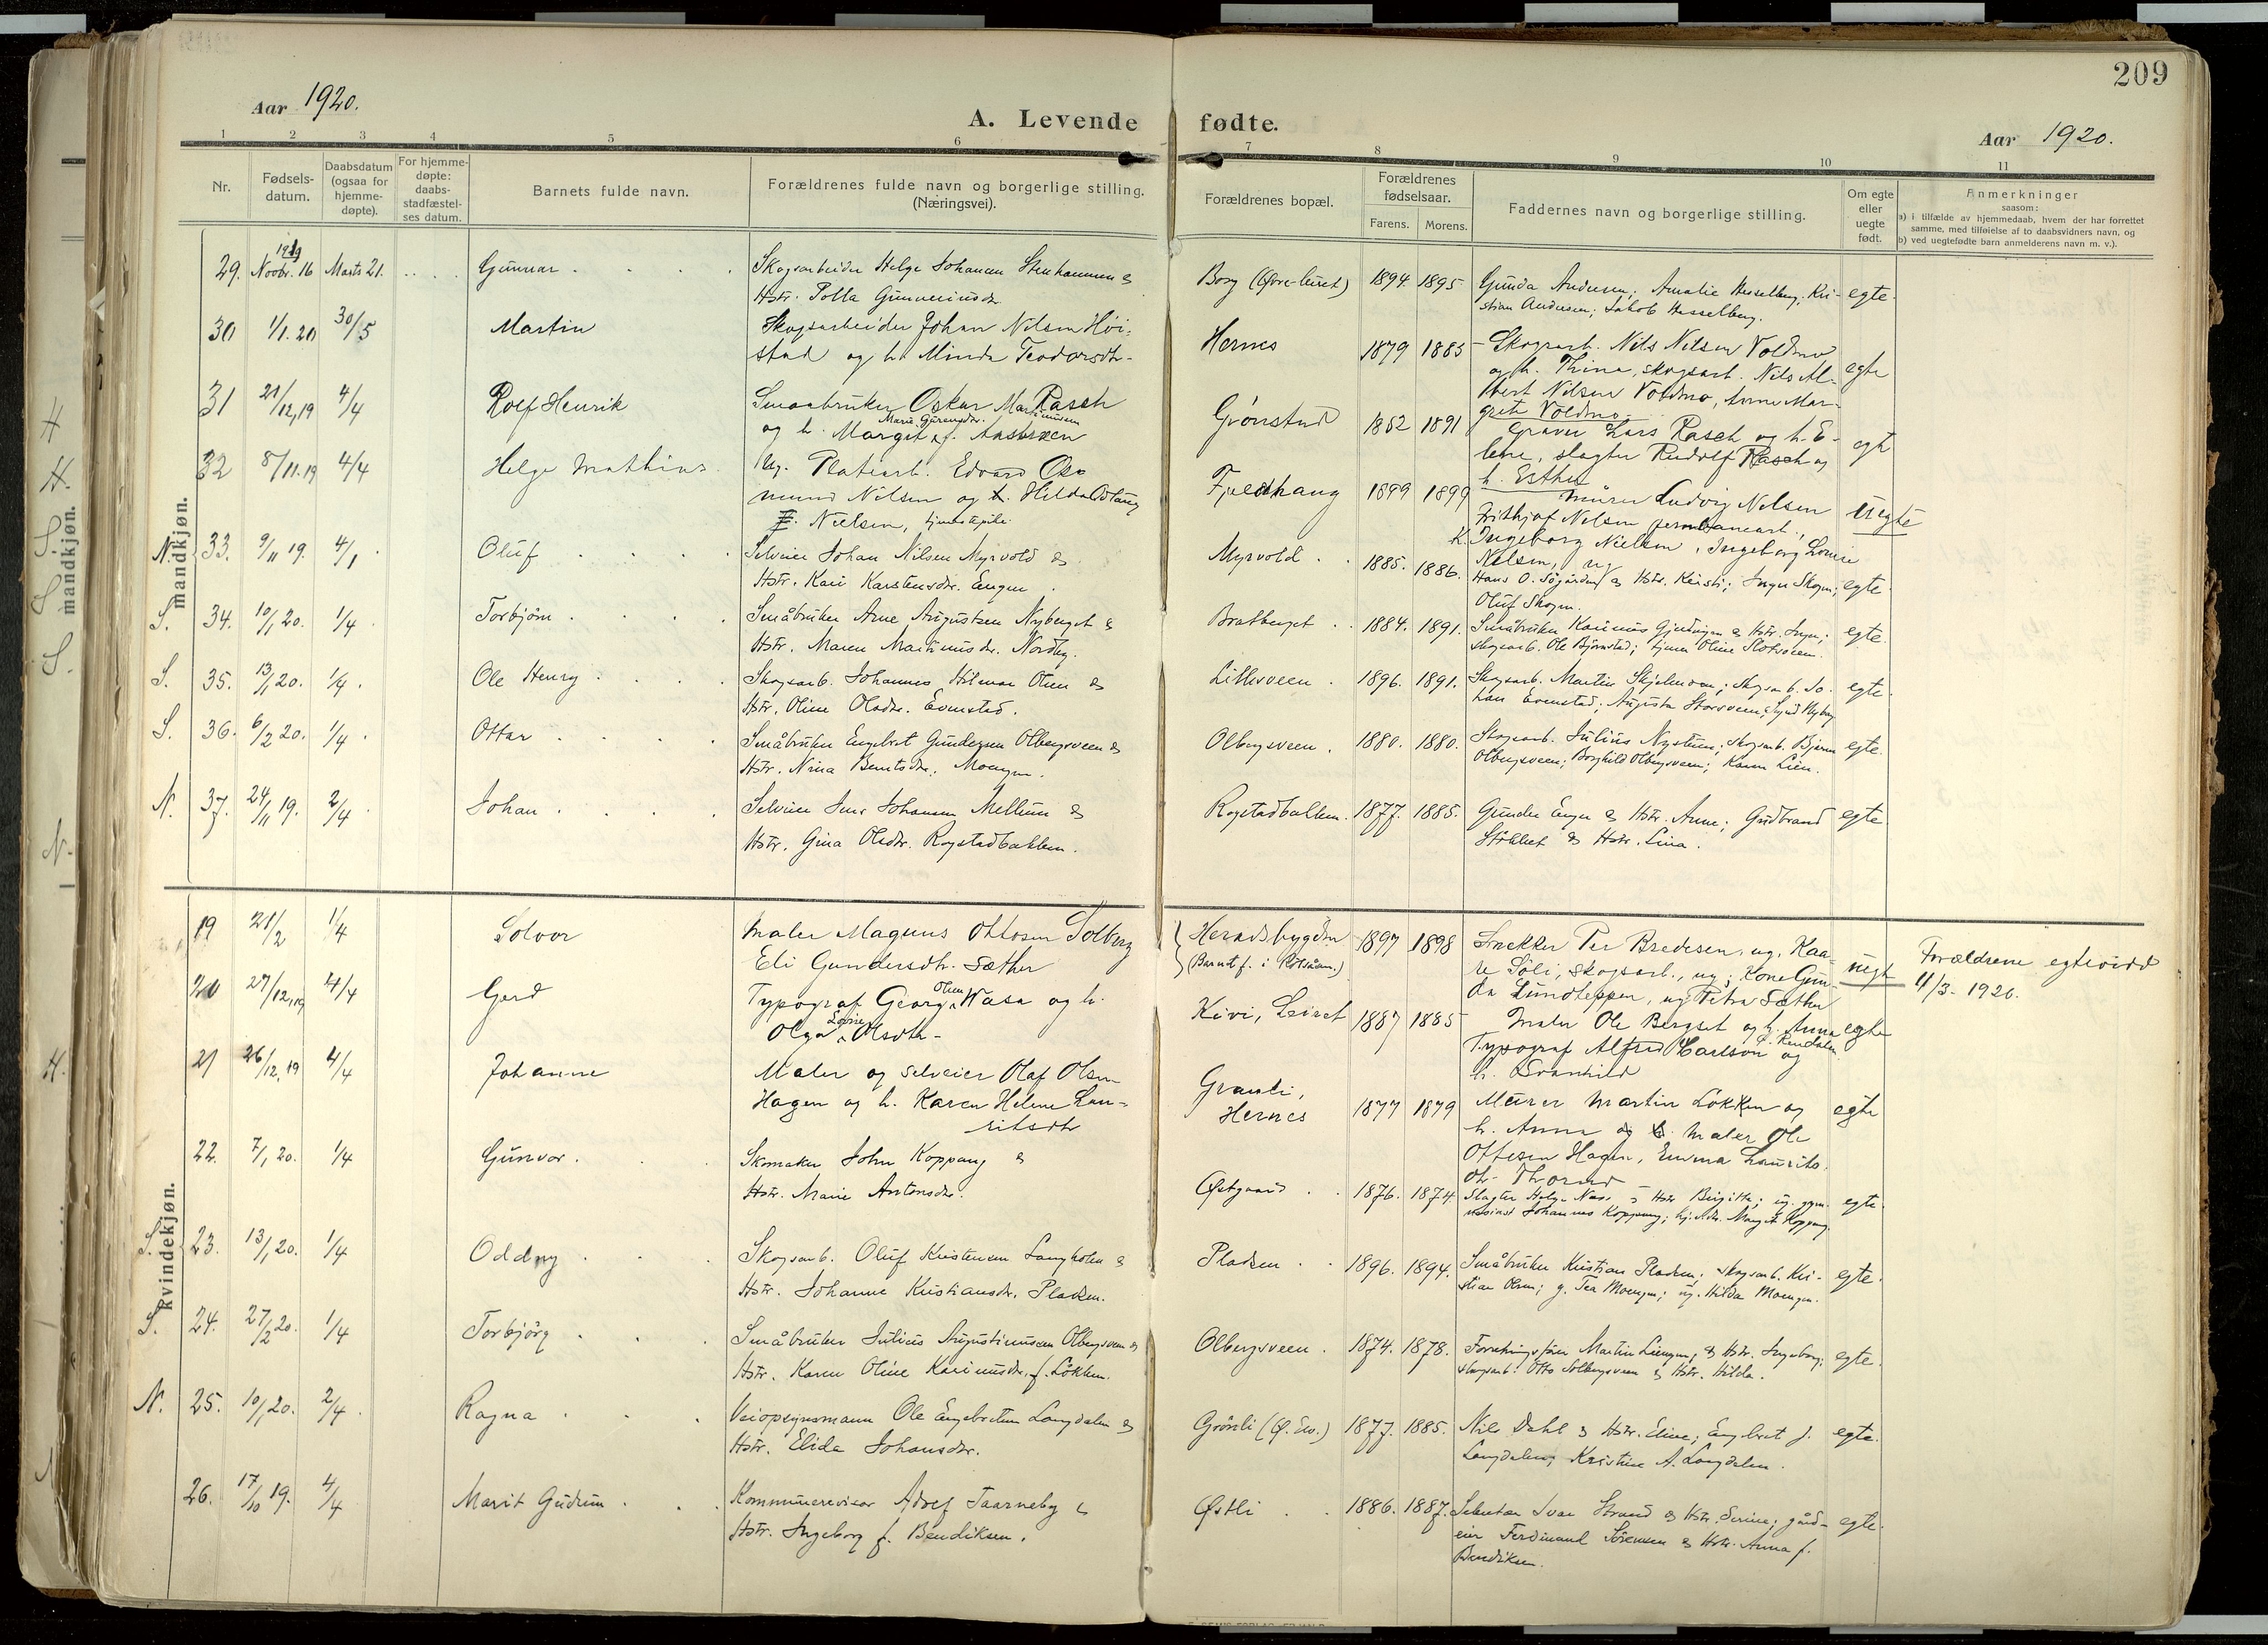 209
Aar 1920.
A. Levende fødte.
Aar 1920.
1 2 3 4 5 6 7 8 9 10 11
Nr.
Fødsels-
datum.
Daabsdatum
(ogsaa for
hjemme-
døpte).
For hjemme-
døpte:
daabs-
stadfæstel-
ses datum.
Barnets fulde navn.
Forældrenes fulde navn og borgerlige stilling.
(Næringsvei).
Forældrenes bopæl.
Forældrenes
fødselsaar.
Farens. Morens.
Faddernes navn og borgerlige stilling.
Om egte
eller
uegte
født.
Anmerkninger
saasom:
a) i tilfælde av hjemmedaab, hvem der har forrettet
samme, med tilføielse av to daabsvidners navn, og
b) ved uegtefødte barn anmelderens navn m. v.).
mandkjøn.
1919
29. Novbr. 16 Marts 21. Gunnar
Skogsarbeider Helge Johansen Stenhammer &
Hstr. Polla Gunveriusdr.
Borg (Øvre-leiret) 1894. 1895
Gunda Andersen; Amalie Hesselberg; Kri-
stian Andersen; Jakob Hesselberg.
egte.
30 1/1.20 30/5 Martin
Skogsarbeider Johan Nilsen Høi-
stad og h. Minda Teodorsdtr.
Hernes 1879 1885
Skogsarb. Nils Nilsen Voldmo
og h. Thina, skogsarb. Nils Al-
bert Nilsen Voldmo, Anne Mar-
grete Voldmo.
egte
31 21/12,19 4/4 Rolf Henrik
Smaabruker Oskar Martinusen Rasch
og h. Margit Marie Gärengsdr. f. Aasbræen
Grønstad 1852 1891
Graver Lars Rasch og h. E-
lene, slagter Rudolf Rasch og
h. Esther
egt
32 8/11.19 4/4 Helge Mathias.
Ug. Platearb. Edvard Os-
mund Nilsen og Hilda
Nielsen, tjenestepike.
Fjeldhaug 1899 1899
Murer Ludvig Nelsen
Frithjof Nelsen jernbanearb.,
K. Ingeborg Nielsen, Ingeborg Lovise
Nelsen, ug.
uegte
N. 33. 9/11 19. 4/1 Oluf
Selveier Johan Nilsen Myrvold &
Hstr. Kari Karstensdr. Engen.
Myrvold 1885. 1886.
Hans O. Sögården & Hstr. Kristi; Inger Skogen;
Oluf Skogen.
egte.
S. 34. 10/1 20. 1/4 Torbjörn
Småbruker Arne Augustsen Nyberget &
Hstr. Maren Martinusdr. Nordby.
Bratberget 1884. 1891.
Småbruker Karinius & Hstr. Inga;
Skogsarb. Ole Björnstad; tjener Oline Slotsveen.
egte.
S. 35. 13/1 20. 1/4. Ole Henry
Skogsarb. Johannes Hilmar Olsen &
Hstr. Oline Olsdr. Evenstad.
Lillesveen 1896. 1891.
Skogsarb. Martin; skogsarb. Jo-
han Evenstad; Augusta Storsveen; Nyborg
egte.
S. 36. 6/2 20. 1/4 Ottar
Småbruker Engebret Gundersen Olbergsveen &
Hstr. Nina Berntsdr. Moengen.
Olbergsveen. 1880. 1880.
Skogsarb. Julius Nysteen; skogsarb. Bjarne
Olbergsveen; Borghild Olbergsveen; Karen Lien.
egte.
N. 37. 24/11 19. 2/4 Johan
Selveier Jens Johansen Mellum &
Hstr. Gina Olsdr. Rogstadbakken.
Rogstadbakken. 1877. 1885.
Gunder Enger & Hstr. Anne; Gudbrand
Stikket & Hstr. Lina.
egte.
kvindekjøn.
19 21/2 1/4 Solvor
Maler Magnus Ottosen Solberg
Eli Gundersdtr. Sæther
Heradsbygden
(Barnet f. i )
1897 1898
Snekker Per Bredesen, ug. Kaa-
re Söli, skogsarb., ug., Kone Gun-
da Lundteppen, ug. Petra Sæther
uegt
Forældrene egteviet
4/3-1920.
20 27/12,19 4/4 Gerd
Typograf Georg Olsen Wasa og h.
Olga Lovise Olsdtr.
Kivi, Leiret 1887 1885
Maler Ole Bergset og h. Anna
Typograf Alfred Carlson og
h. Svanhild
egte
21 26/12,19 4/4 Johanne
Maler og selveier Olaf Olsen
Hagen og h. Karen Helene Lau-
ritsdtr
Granli,
Hernes 1877 1879
Murer Martin Løkken og
h. Anna og maler Ole
Ottesen Hagen, Emma Laurits-
dtr. Thorud
egte
22. 7/1 20. 1/4 Gunvor.
Skomaker John Koppang &
Hstr. Marie Antonsdr.
Østgaard 1876. 1874.
Slagter Helge Næss & Hstr. Birgitte; ug. gym-
nasiast Johannes Koppang; Margit Koppang.
egte.
S. 23. 13/1 20. 1/4 Oddny
Skogsarb. Oluf Kristensen Langholen &
Hstr. Johanne Kristiansdr. Pladsen.
Pladsen 1896. 1894.
Småbruker Kristian Pladsen; skogsarb. Kri-
stian Olsen; g. Tea Moengen; ug. Hilda Moengen.
egte.
S. 24. 27/2 20. 1/4 Torbjörg
Småbruker Julius Augustinusen Olbergsveen &
Hstr. Karen Oline Karinusdr. f. Lökken.
Olbergsveen. 1874. 1878.
Forretningsfører Martin Liengen & Hstr. Ingeborg;
skogsarb. Otto Solbergsveen & Hstr. Hilda.
egte.
N. 25. 10/1 20. 2/4 Ragna
Veiopsynsmann Ole Engebretsen Langdalen &
Hstr. Elida Johansdr.
Grönli (Ø. Els.) 1877. 1885.
Nils Dahl & Hstr. Eline; Engebret J.
Langdalen; Kristine A. Langdalen.
egte.
26. 17/10 19. 4/4 Marit Gudrun
Kommunerevisor Adolf Taarneby &
Hstr. Ingeborg f. Bendiksen.
Østli 1886. 1887.
Sekretær Ivar Strand & Hstr. Serine; gård-
eier Ferdinand Sörensen & Hstr. Anna f.
Bendiksen.
egte.